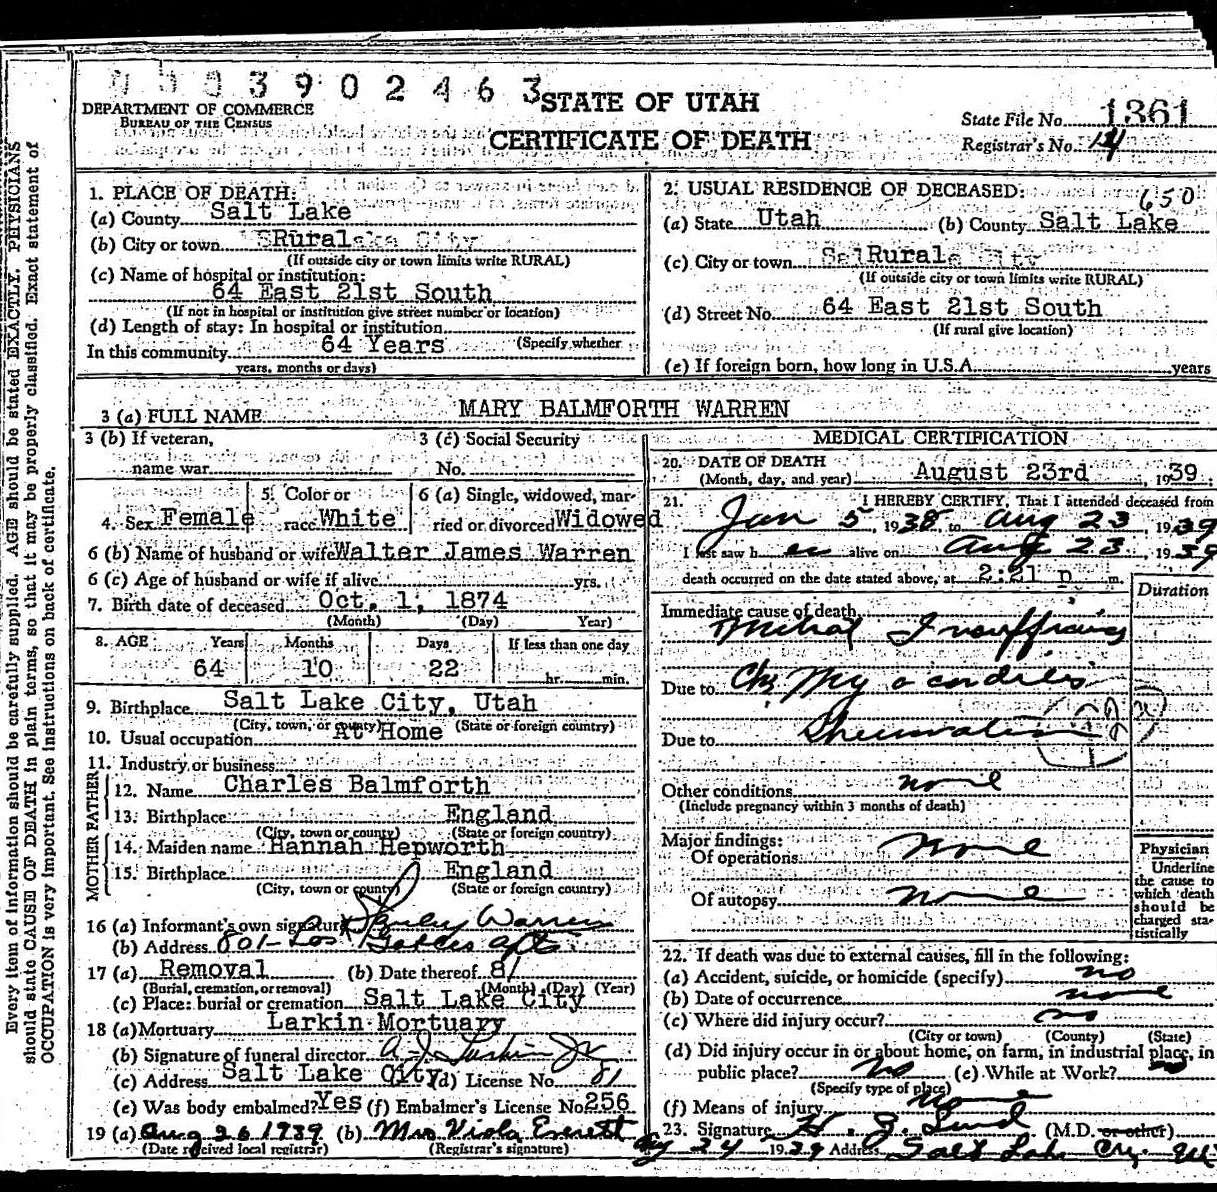 390246 3
STATE OF UTAH
CERTIFICATE OF DEATH
DEPARTMENT OF COMMERCE
BUREAU OF THE CENSUS
State File No. 1361
Registrar's No.
Every item of information should be carefully supplied. AGE should be stated EXACTLY. PHYSICIANS
should state CAUSE OF DEATH in plain terms, so that it may be properly classified. Exact statement of
OCCUPATION is very important. See instructions on back of certificate.
1. PLACE OF DEATH:
(a) County Salt Lake
(b) City or town Rural
(If outside city or town limits write RURAL)
(c) Name of hospital or institution:
64 East 21st South
(If not in hospital or institution give street number or location)
(d) Length of stay: In hospital or institution
In this community 64 Years (Specify whether
years, months or days)
2. USUAL RESIDENCE OF DECEASED: 650
(a) State Utah (b) County Salt Lake
(c) City or town Rural
(If outside city or town limits write RURAL)
(d) Street No. 64 East 21st South
(If rural give location)
(e) If foreign born, how long in U.S.A. years
3 (a) FULL NAME MARY BALMFORTH WARREN
3 (b) If veteran,
name war
3 (c) Social Security
No.
4. Sex Female
5. Color or
race White
6 (a) Single, widowed, mar-
ried or divorced Widowed
6 (b) Name of husband or wife Walter James Warren
6 (c) Age of husband or wife if alive yrs.
7. Birth date of deceased Oct. 1, 1874
(Month) (Day) Year)
8. AGE Years Months Days If less than one day
64 10 22 hr. min.
9. Birthplace Salt Lake City, Utah
(City, town, or county) (State or foreign country)
10. Usual occupation At Home
11. Industry or business
FATHER
12. Name Charles Balmforth
13. Birthplace England
(City, town or county) (State or foreign country)
MOTHER
14. Maiden name Hannah Hepworth
15. Birthplace England
(City, town or county) (State or foreign country)
16 (a) Informant's own signature Stanley Warren
(b) Address 801- Los Gables Apts.
17 (a) Removal (b) Date thereof 8/
(Burial, cremation, or removal) (Month) (Day) (Year)
(c) Place: burial or cremation Salt Lake City
18 (a) Mortuary Larkin Mortuary
(b) Signature of funeral director A. J. Larkin Jr.
(c) Address Salt Lake City (d) License No. 81
(e) Was body embalmed? Yes (f) Embalmer's License No. 256
19 (a) Aug 26 1939 (b) Mrs Viola Everett
(Date received local registrar) (Registrar's signature)
MEDICAL CERTIFICATION
20. DATE OF DEATH
(Month, day, and year) August 23rd, 1939.
21. I HEREBY CERTIFY, That I attended deceased from
Jan 5, 1938 to Aug 23, 1939
I last saw her alive on Aug 23, 1939
death occurred on the date stated above, at 2:21 p m.
Duration
Immediate cause of death
Mitral Insufficiency
Due to Chr Myocarditis
Due to Rheumatism
Other conditions none
(Include pregnancy within 3 months of death)
Major findings:
Of operations none
Of autopsy none
Physician
Underline
the cause to
which death
should be
charged sta-
tistically
22. If death was due to external causes, fill in the following:
(a) Accident, suicide, or homicide (specify) no
(b) Date of occurrence none
(c) Where did injury occur? no
(City or town) (County) (State)
(d) Did injury occur in or about home, on farm, in industrial place, in
public place? No (e) While at Work? no
(Specify type of place)
(f) Means of injury none
23. Signature H. J. Lund (M.D. or other)
Aug 24 1939 Address Salt Lake City, Ut